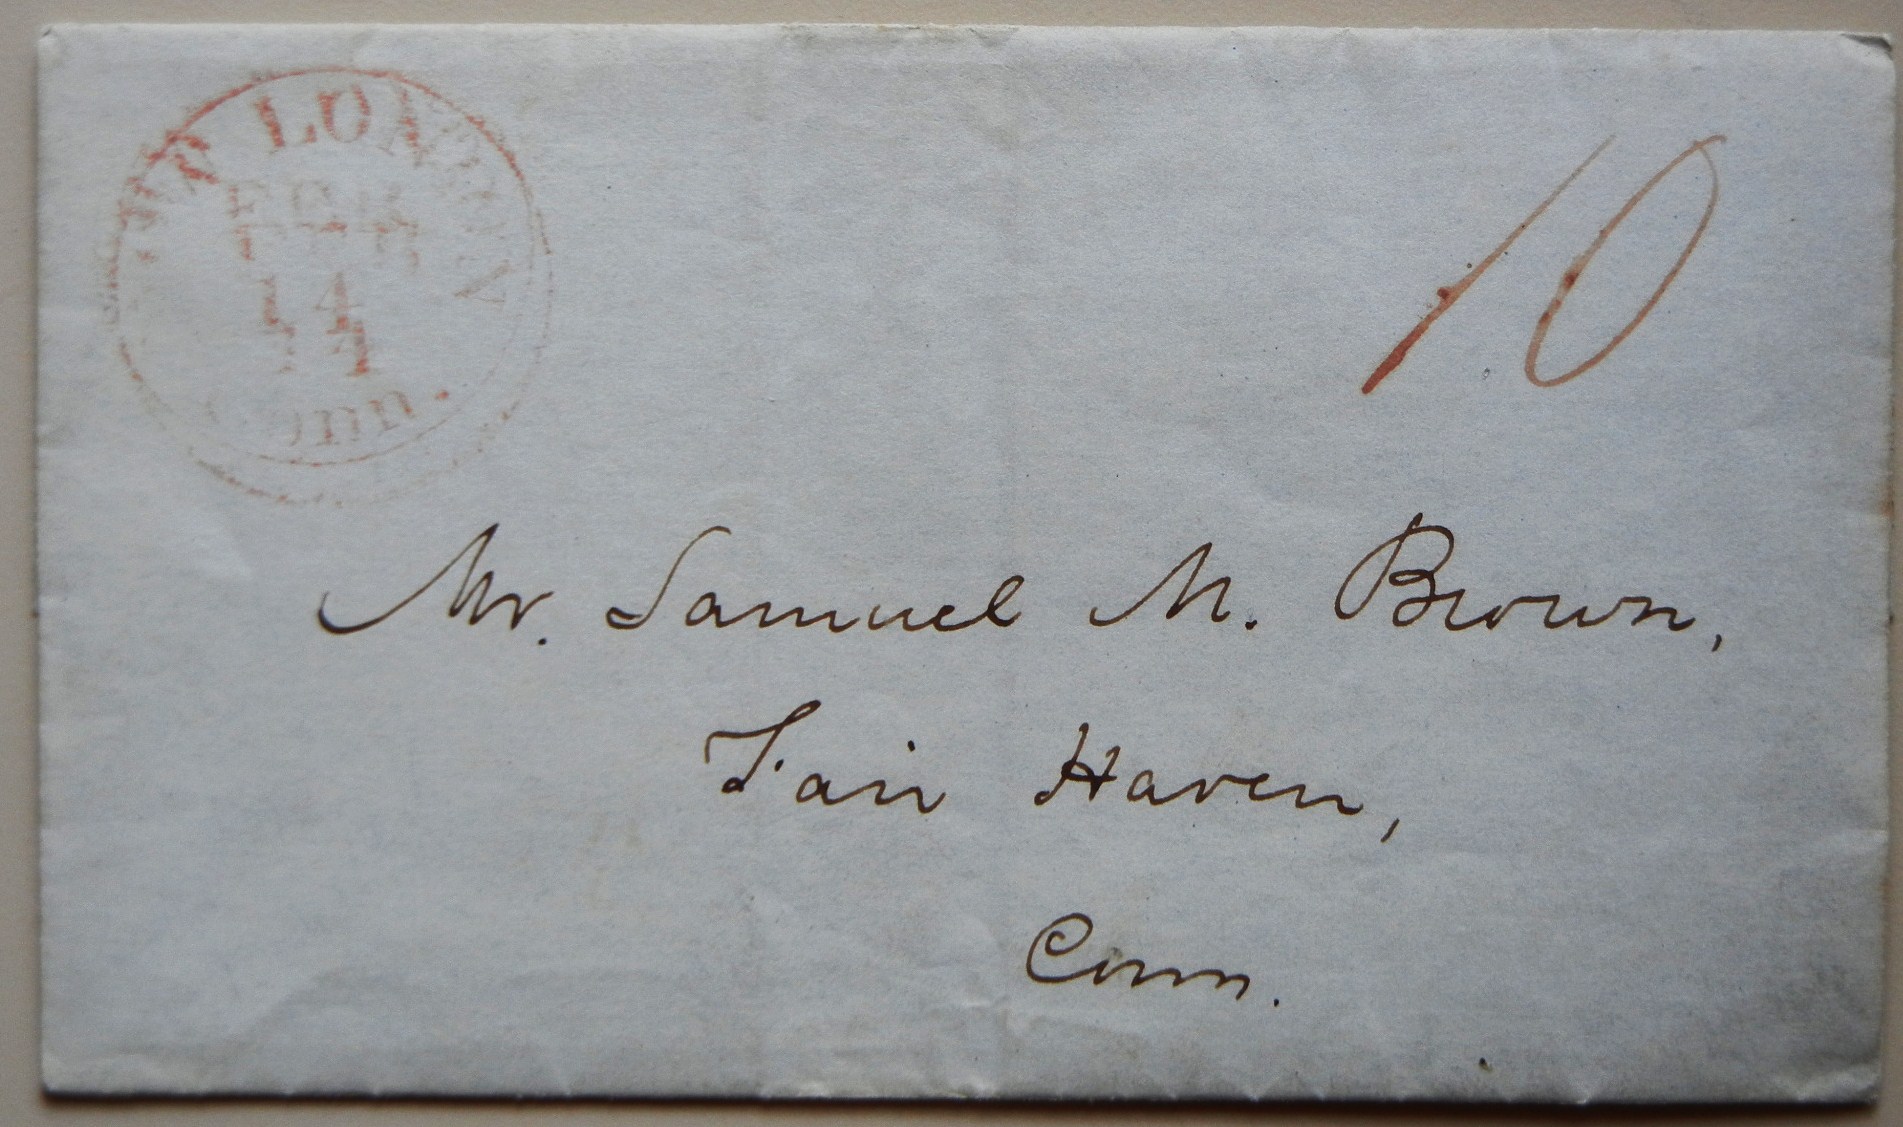 NEW LONDON
FEB
14
Conn.
10
Mr. Samuel M. Brown,
Fair Haven,
Conn.